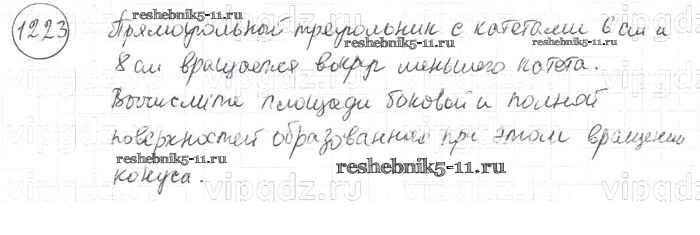 1223 Прямоугольной треугольник с катетами 6 см и
8 см вращается вокруг меньшего катета.
Вычислите площади боковой и полной
поверхностей образованная при этом вращении
конуса.
reshebnik5-11.ru
reshebnik5-11.ru
reshebnik5-11.ru
reshebnik5-11.ru
vipgdz.ru